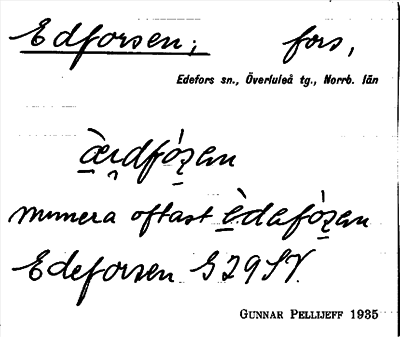 Edforsen; fors,
Edefors sn., Överluleå tg., Norrb. län
numera oftast èdafózan
Edeforsen G29SV.
GUNNAR PELLIJEFF 1935